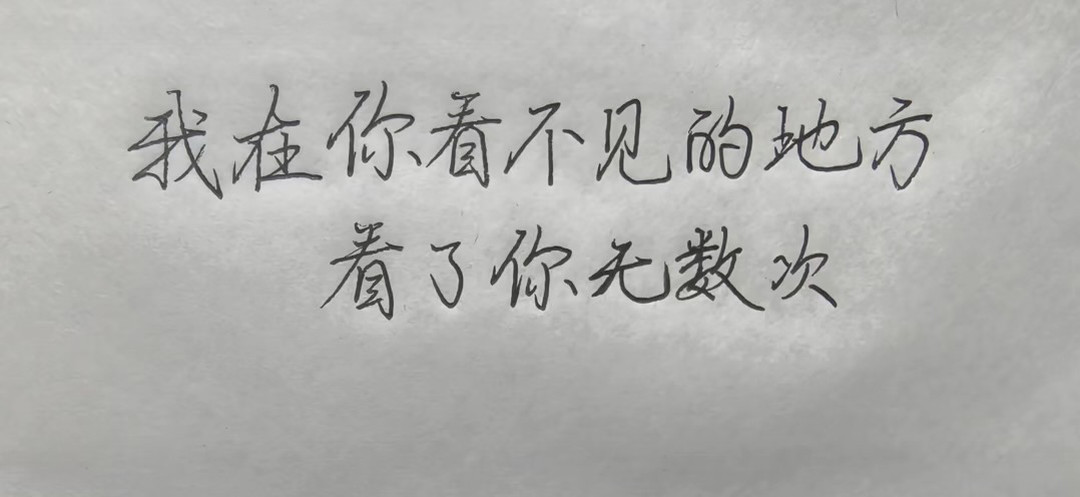 我在你看不见的地方
看了你无数次